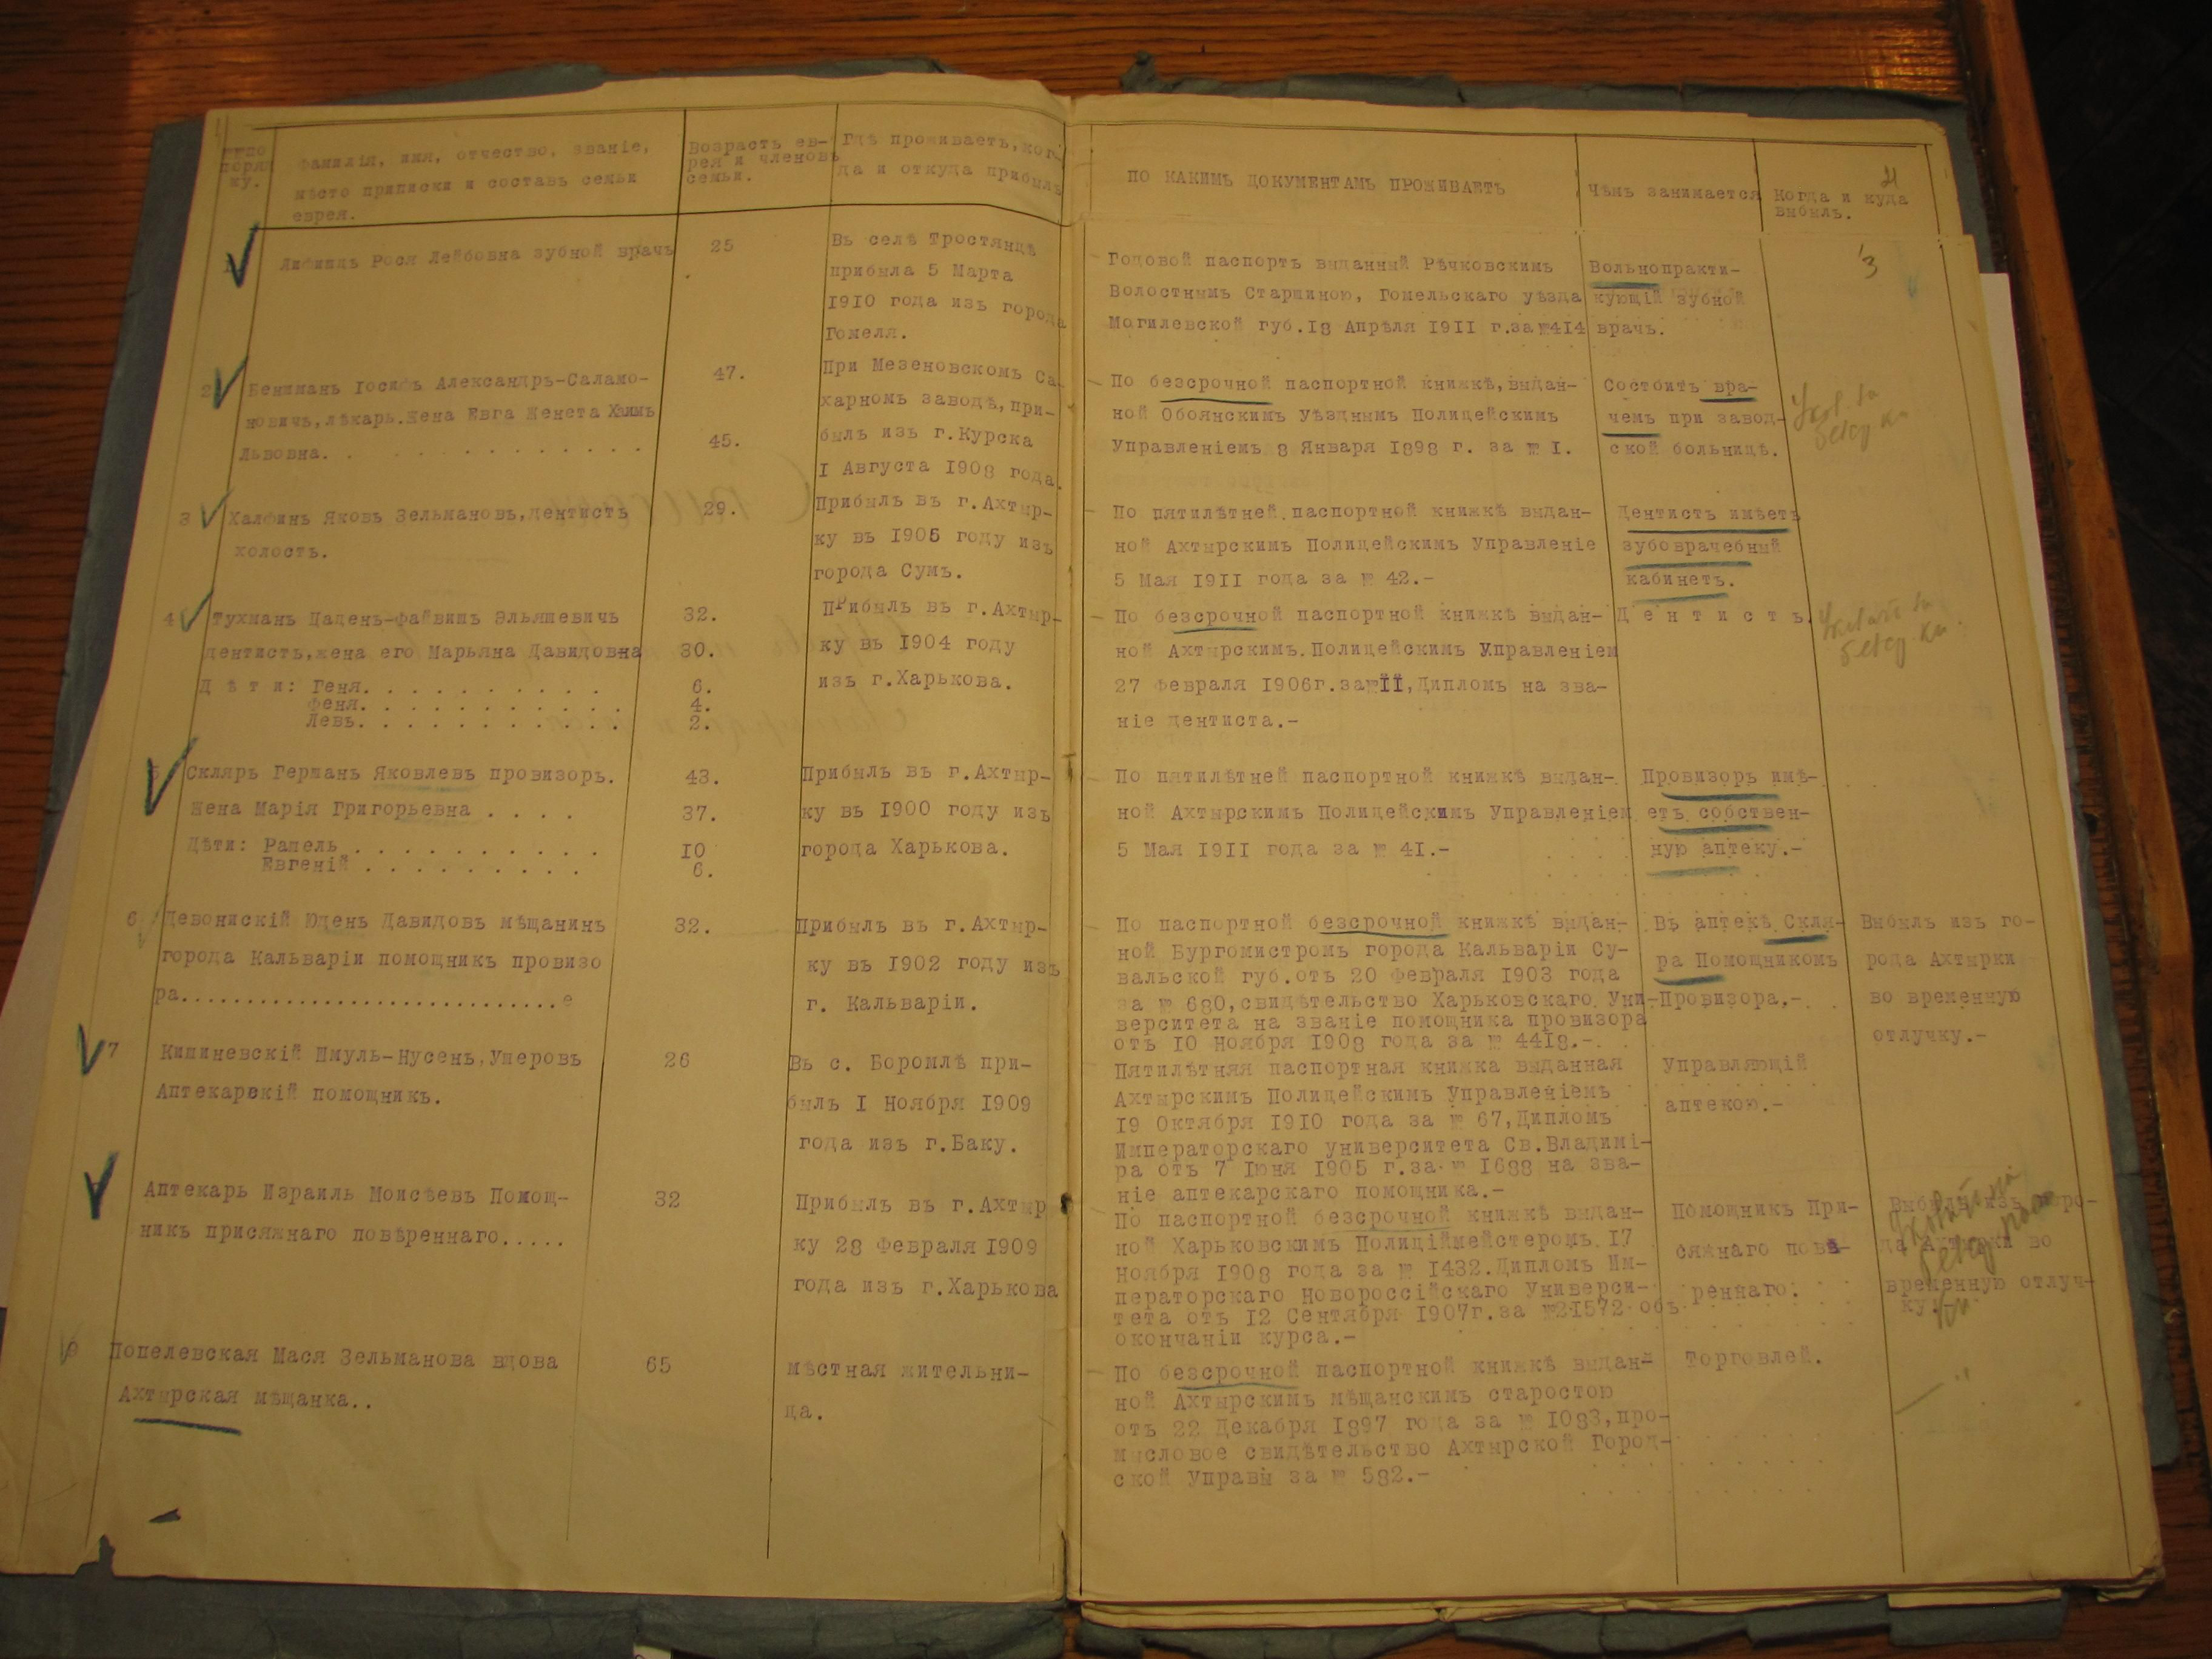 №№ по
поряд
ку.
Фамилія, имя, отчество, званіе,
мѣсто приписки и составъ семьи
еврея.
Возрастъ ев-
рея и членовъ
семьи.
Гдѣ проживаетъ, ког-
да и откуда прибылъ
ПО КАКИМЪ ДОКУМЕНТАМЪ ПРОЖИВАЕТЪ
Чѣмъ занимается
Когда и куда
выбылъ.
3
Рося Лейбовна зубной врачъ
25
Въ селѣ Тростянцѣ
прибыла 5 Марта
1910 года изъ города
Гомеля.
Годовой паспортъ выданный Рѣчковскимъ
Волостнымъ Старшиною, Гомельскаго уѣзда
Могилевской губ. 18 Апрѣля 1911 г. за №414
Вольнопракти-
кующій зубной
врачъ.
2
Бениманъ Іосифъ Александръ-Саламо-
новичъ, лѣкарь. Жена Евга Женета Хаимъ
Львовна. . . . . . . . . . . . .
47.
45.
При Мезеновскомъ Са-
харномъ заводѣ, при-
былъ изъ г. Курска
I Августа 1908 года.
По безсрочной паспортной книжкѣ, выдан-
ной Обоянскимъ Уѣзднымъ Полицейскимъ
Управленіемъ 8 Января 1898 г. за № I.
Состоитъ вра-
чемъ при завод-
ской больницѣ.
3
Халфинъ Яковъ Зельмановъ, дентистъ
холостъ.
29.
Прибылъ въ г. Ахтыр-
ку въ 1905 году изъ
города Сумъ.
По пятилѣтней паспортной книжкѣ выдан-
ной Ахтырскимъ Полицейскимъ Управленіе
5 Мая 1911 года за № 42.-
Дентистъ имѣетъ
зубоврачебный
кабинетъ.
4
Тухманъ Цаденъ-Файвишъ Эльяшевичъ
дентистъ, жена его Марьяна Давидовна
Д ѣ т и: Геня. . . . . . . . . . .
Феня. . . . . . . . . . . .
Левъ. . . . . . . . . . . .
32.
30.
6.
4.
2.
Прибылъ въ г. Ахтыр-
ку въ 1904 году
изъ г. Харькова.
По безсрочной паспортной книжкѣ выдан-
ной Ахтырскимъ. Полицейскимъ Управленіем
27 Февраля 1906г. за№II, Дипломъ на зва-
ніе дентиста.-
Д е н т и с т ъ.
5
Скляръ Германъ Яковлевъ провизоръ.
Жена Марія Григорьевна . . . .
Дѣти: Рашель . . . . . . . . . .
Евгеній . . . . . . . . .
43.
37.
10
6.
Прибылъ въ г. Ахтыр-
ку въ 1900 году изъ
города Харькова.
По пятилѣтней паспортной книжкѣ выдан-
ной Ахтырскимъ Полицейскимъ Управленіем
5 Мая 1911 года за № 41.-
Провизоръ имѣ-
етъ собствен-
ную аптеку.-
6
Девонискій Юдень Давидовъ мѣщанинъ
города Кальваріи помощникъ провизо
ра.............................е
32.
Прибылъ въ г. Ахтыр-
ку въ 1902 году изъ
г. Кальваріи.
По паспортной безсрочной книжкѣ выдан-
ной Бургомистромъ города Кальваріи Су-
вальской губ. отъ 20 Февраля 1903 года
за № 680, свидѣтельство Харьковскаго Уни-
верситета на званіе помощника провизора
отъ 10 Ноября 1908 года за № 4418.-
Въ аптекѣ Скля-
ра Помощникомъ
Провизора.-
Выбылъ изъ го-
рода Ахтырки
во временную
отлучку.-
7
Кишиневскій Шмуль-Нусенъ, Ушеровъ
Аптекарскій помощникъ.
26
Въ с. Боромлѣ при-
былъ I Ноября 1909
года изъ г. Баку.
Пятилѣтняя паспортная книжка выданная
Ахтырскимъ Полицейскимъ Управленіемъ
19 Октября 1910 года за № 67, Дипломъ
Императорскаго университета Св. Владимі-
ра отъ 7 Іюня 1905 г. за № 1688 на зва-
ніе аптекарскаго помощника.-
Управляющій
аптекою.-
Аптекарь Израиль Моисѣевъ Помощ-
никъ присяжнаго повѣреннаго.....
32
Прибылъ въ г. Ахтыр
ку 28 Февраля 1909
года изъ г. Харькова
По паспортной безсрочной книжкѣ выдан-
ной Харьковскимъ Полиціймейстеромъ 17
Ноября 1908 года за № 1432. Дипломъ Им-
ператорскаго Новороссійскаго Универси-
тета отъ 12 Сентября 1907г. за №21572 объ
окончаніи курса.-
Помощникъ При-
сяжнаго повѣ-
реннаго.
Выбылъ изъ горо-
да Ахтырки во
временную отлуч-
ку.-
9
Попелевская Мася Зельманова вдова
Ахтырская мѣщанка..
65
мѣстная жительни-
ца.
По безсрочной паспортной книжкѣ выдан-
ной Ахтырскимъ мѣщанскимъ старостою
отъ 22 Декабря 1897 года за № 1083, про-
мысловое свидѣтельство Ахтырской Город-
ской Управы за № 582.-
Торговлей.